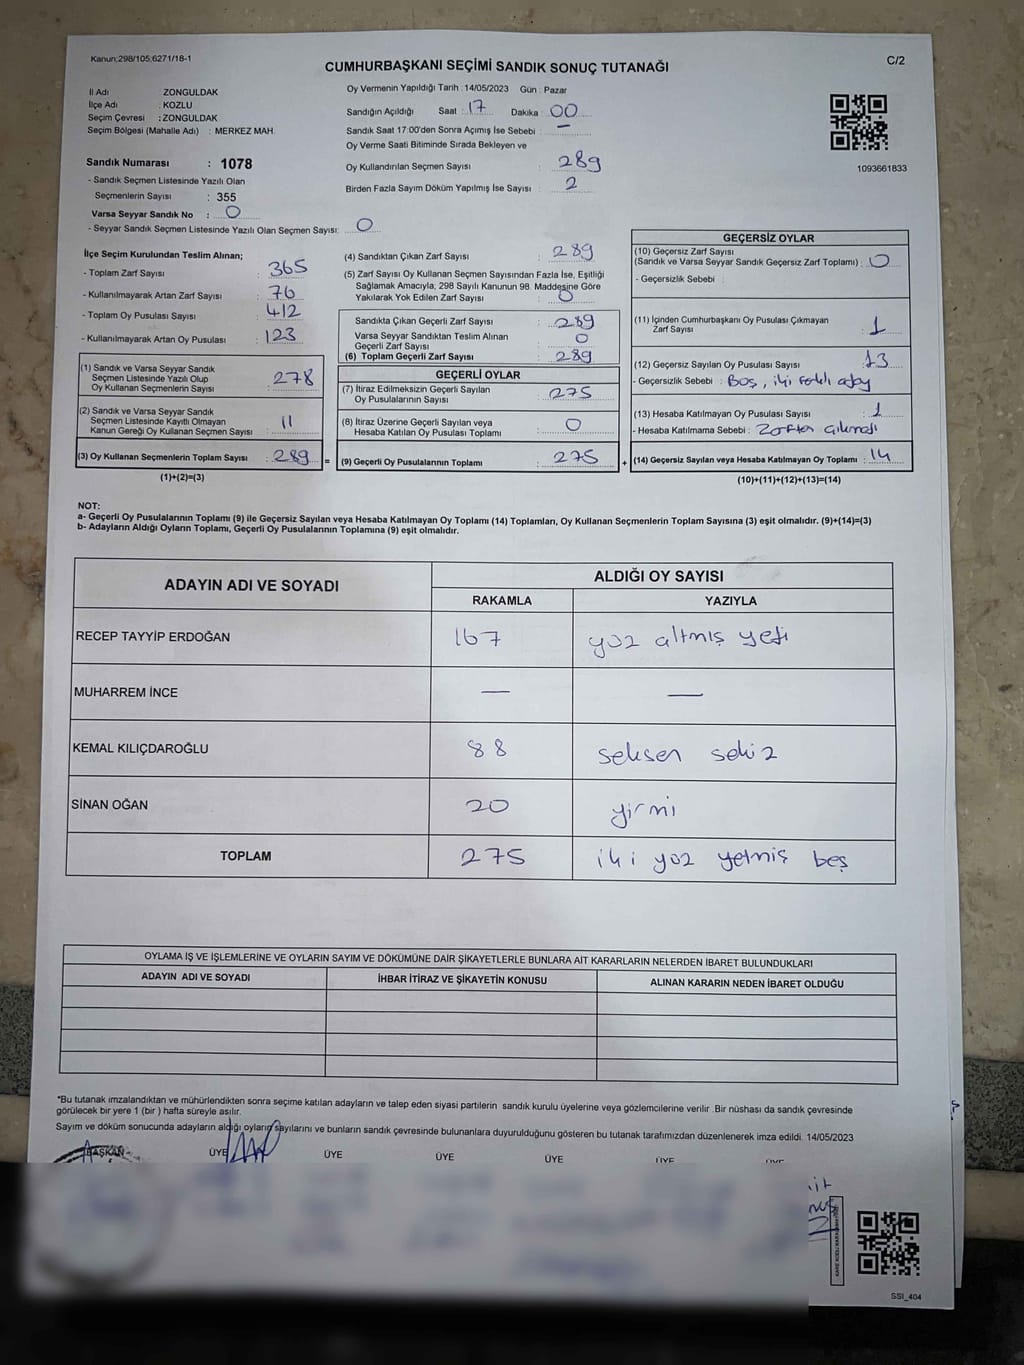 Kanun;298/105;6271/18-1
C/2
CUMHURBAŞKANI SEÇİMİ SANDIK SONUÇ TUTANAĞI
İl Adı : ZONGULDAK
İlçe Adı : KOZLU
Seçim Çevresi : ZONGULDAK
Seçim Bölgesi (Mahalle Adı) : MERKEZ MAH.
Sandık Numarası : 1078
- Sandık Seçmen Listesinde Yazılı Olan
Seçmenlerin Sayısı : 355
Varsa Seyyar Sandık No : 0
- Seyyar Sandık Seçmen Listesinde Yazılı Olan Seçmen Sayısı: 0
Oy Vermenin Yapıldığı Tarih : 14/05/2023 Gün : Pazar
Sandığın Açıldığı Saat : 17 Dakika : 00
Sandık Saat 17:00'den Sonra Açımış İse Sebebi : —
Oy Verme Saati Bitiminde Sırada Bekleyen ve
Oy Kullandırılan Seçmen Sayısı : 289
Birden Fazla Sayım Döküm Yapılmış İse Sayısı : 2
1093661833
İlçe Seçim Kurulundan Teslim Alınan;
- Toplam Zarf Sayısı : 365
- Kullanılmayarak Artan Zarf Sayısı : 76
- Toplam Oy Pusulası Sayısı : 412
- Kullanılmayarak Artan Oy Pusulası : 123
(1) Sandık ve Varsa Seyyar Sandık
Seçmen Listesinde Yazılı Olup
Oy Kullanan Seçmenlerin Sayısı : 278
(2) Sandık ve Varsa Seyyar Sandık
Seçmen Listesinde Kayıtlı Olmayan
Kanun Gereği Oy Kullanan Seçmen Sayısı : 11
(3) Oy Kullanan Seçmenlerin Toplam Sayısı : 289 =
(1)+(2)=(3)
(4) Sandıktan Çıkan Zarf Sayısı : 289
(5) Zarf Sayısı Oy Kullanan Seçmen Sayısından Fazla İse, Eşitliği
Sağlamak Amacıyla, 298 Sayılı Kanunun 98. Maddesine Göre
Yakılarak Yok Edilen Zarf Sayısı : 0
Sandıkta Çıkan Geçerli Zarf Sayısı : 289
Varsa Seyyar Sandıktan Teslim Alınan
Geçerli Zarf Sayısı : 0
(6) Toplam Geçerli Zarf Sayısı : 289
GEÇERLİ OYLAR
(7) İtiraz Edilmeksizin Geçerli Sayılan
Oy Pusulalarının Sayısı : 275
(8) İtiraz Üzerine Geçerli Sayılan veya
Hesaba Katılan Oy Pusulası Toplamı : 0
(9) Geçerli Oy Pusulalarının Toplamı : 275 +
GEÇERSİZ OYLAR
(10) Geçersiz Zarf Sayısı
(Sandık ve Varsa Seyyar Sandık Geçersiz Zarf Toplamı) : 0
- Geçersizlik Sebebi :
(11) İçinden Cumhurbaşkanı Oy Pusulası Çıkmayan
Zarf Sayısı : 1
(12) Geçersiz Sayılan Oy Pusulası Sayısı : 13
- Geçersizlik Sebebi : Boş, iki farklı aday
(13) Hesaba Katılmayan Oy Pusulası Sayısı : 1
- Hesaba Katılmama Sebebi : Zarftan çıkmadı
(14) Geçersiz Sayılan veya Hesaba Katılmayan Oy Toplamı : 14
(10)+(11)+(12)+(13)=(14)
NOT:
a- Geçerli Oy Pusulalarının Toplamı (9) ile Geçersiz Sayılan veya Hesaba Katılmayan Oy Toplamı (14) Toplamları, Oy Kullanan Seçmenlerin Toplam Sayısına (3) eşit olmalıdır. (9)+(14)=(3)
b- Adayların Aldığı Oyların Toplamı, Geçerli Oy Pusulalarının Toplamına (9) eşit olmalıdır.
ADAYIN ADI VE SOYADI
ALDIĞI OY SAYISI
RAKAMLA YAZIYLA
RECEP TAYYİP ERDOĞAN 167 yüz altmış yedi
MUHARREM İNCE — —
KEMAL KILIÇDAROĞLU 88 seksen sekiz
SİNAN OĞAN 20 yirmi
TOPLAM 275 iki yüz yetmiş beş
OYLAMA İŞ VE İŞLEMLERİNE VE OYLARIN SAYIM VE DÖKÜMÜNE DAİR ŞİKAYETLERLE BUNLARA AİT KARARLARIN NELERDEN İBARET BULUNDUKLARI
ADAYIN ADI VE SOYADI İHBAR İTİRAZ VE ŞİKAYETİN KONUSU ALINAN KARARIN NEDEN İBARET OLDUĞU
*Bu tutanak imzalandıktan ve mühürlendikten sonra seçime katılan adayların ve talep eden siyasi partilerin sandık kurulu üyelerine veya gözlemcilerine verilir. Bir nüshası da sandık çevresinde
görülecek bir yere 1 (bir ) hafta süreyle asılır.
Sayım ve döküm sonucunda adayların aldığı oyların sayılarını ve bunların sandık çevresinde bulunanlara duyurulduğunu gösteren bu tutanak tarafımızdan düzenlenerek imza edildi. 14/05/2023
BAŞKAN ÜYE ÜYE ÜYE ÜYE ÜYE ÜYE
SSI_404